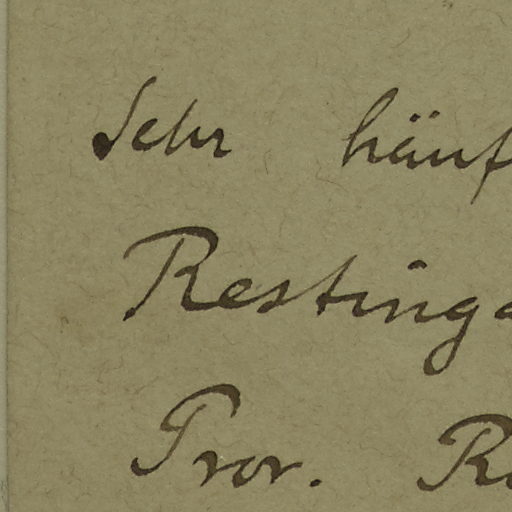 Sehr häuf
Restinga
Prov. Ri